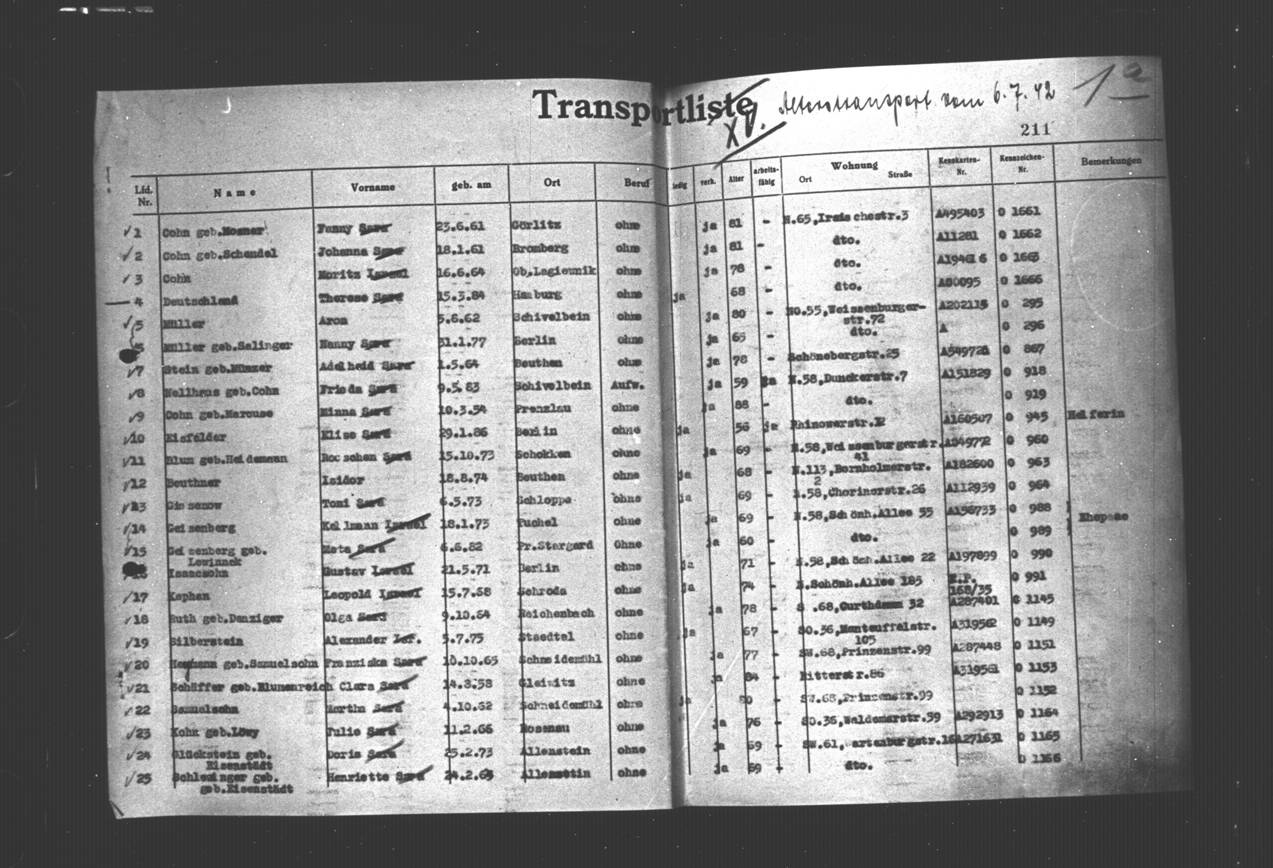 Transportliste
XV. Alterstransport vom 6.7.42
1a
211
Lfd. Nr. Name Vorname geb. am Ort Beruf ledig verh. Alter arbeitsfähig Wohnung Ort Straße Kennkarten-Nr. Kennzeichen-Nr. Bemerkungen
1 Cohn geb.Mosner Fanny Sara 23.6.61 Görlitz ohne ja 81 - N.65,Iranischestr.3 A495403 O 1661
2 Cohn geb.Schendel Johanna Sara 18.1.61 Bromberg ohne ja 81 - dto. A11281 O 1662
3 Cohn Moritz Israel 16.6.64 Ob.Lagiewnik ohne ja 78 - dto. O 1663
4 Deutschland Therese Sara 15.3.84 Hamburg ohne ja 68 - dto. A00095 O 1666
5 Müller Aron 5.8.62 Schivelbein ohne ja 80 - NO.55,Weissenburger-str.72 A202115 O 295
Müller geb.Salinger Nanny Sara 31.1.77 Berlin ohne ja 65 - dto. A O 296
7 Stein geb.Münzer Adelheid Sara 1.5.64 Beuthen ohne ja 78 - Schönebergstr.25 O 867
8 Wellhaus geb.Cohn Frieda Sara 9.5.83 Schivelbein Aufw. ja 59 ja N.58,Dunckerstr.7 A151829 O 918
9 Cohn geb.Marcuse Minna Sara 10.3.54 Prenzlau ohne ja 88 - dto. O 919
10 Eisfelder Elise Sara 29.1.86 Berlin ohne ja 56 ja Rhinowerstr. A160507 O 945 Helferin
11 Blum geb.Heidemann Roschen Sara 15.10.73 Schokken ohne ja 69 - N.58,Weissenburgerstr.41 O 960
12 Beuthner Isidor 18.8.74 Beuthen ohne ja 68 - N.113,Bornholmerstr.2 A182600 O 963
13 Toni Sara 6.5.73 Schloppe ohne ja 69 - N.58,Chorinerstr.26 A112939 O 964
14 Geisenberg Kallmann Israel 18.1.73 Tuchel ohne ja 69 - N.58,Schönh.Allee 55 A156733 O 988
15 Geisenberg geb.Lewinnek Meta Sara 6.6.82 Pr.Stargard Ohne ja 60 - dto. O 989
Isaacsohn Gustav Israel 21.5.71 Berlin ohne ja 71 - N.58,Schönh.Allee 22 A197899 O 990
17 Kaphan Leopold Israel 15.7.68 Schroda ohne ja 74 - N.Schönh.Allee 185 168/35 O 991
18 Ruth geb.Danziger Olga Sara 9.10.64 Reichenbach ohne ja 78 - A287401 O 1145
19 Silberstein Alexander Isr. 5.7.75 Staedtel ohne ja 67 - SO.36,Manteuffelstr.105 A319562 O 1149
20 Heymann geb.Samuelsohn Franziska Sara 10.10.65 Schneidemühl ohne ja 77 - SW.68,Prinzenstr.99 A287448 O 1151
21 Schäffer geb.Blumenreich Clara Sara 14.8.58 Gleiwitz ohne ja 84 - Ritterstr.86 A319561 O 1153
22 Samuelsohn Martha Sara 4.10.62 Schneidemühl ohne ja 80 - SW.68,Prinzenstr.99 O 1152
23 Kohn geb.Löwy Julie Sara 11.2.66 Rosenau ohne ja 76 - SO.36,Waldemarstr.39 A292913 O 1164
24 Glückstein geb.Eisenstädt Doris Sara 25.2.73 Allenstein ohne ja 69 - A271631 O 1165
25 Schlesinger geb.geb.Eisenstädt Henriette Sara Allenstein ohne ja 69 - dto. O 1166